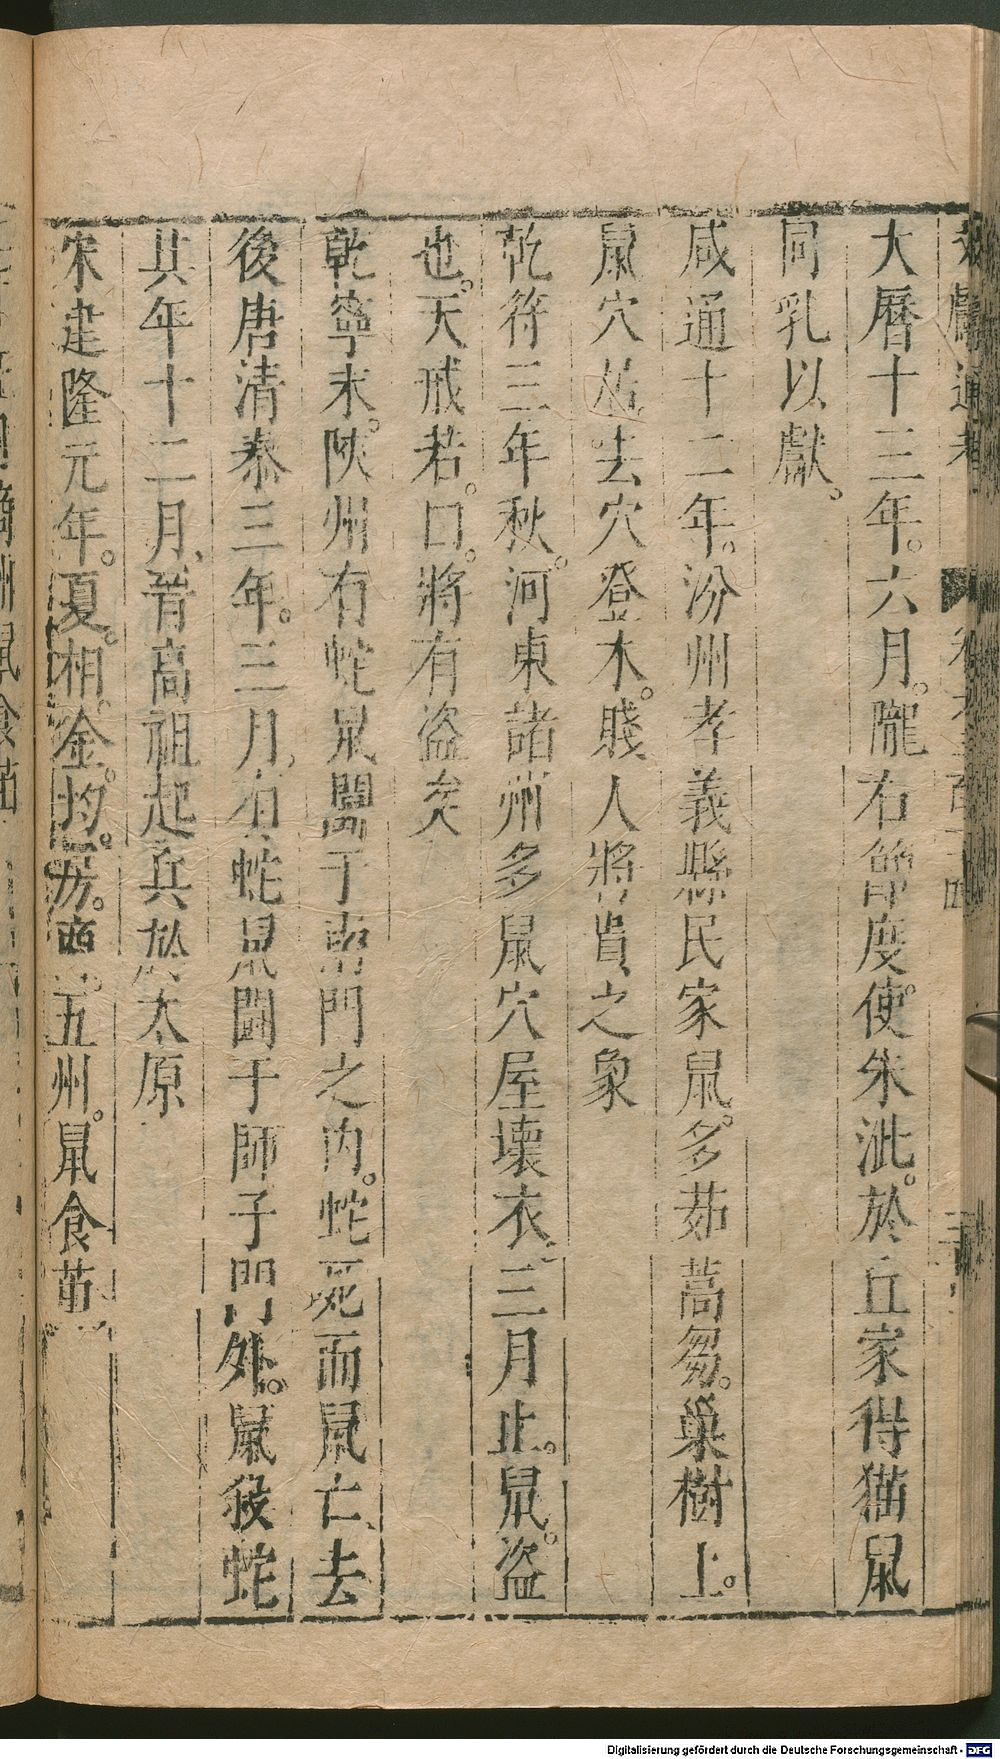 大曆十三年。六月。隴右節度使朱泚。於丘家得猫鼠
同乳以獻。
咸通十二年。汾州孝義縣民家鼠。多茹蒿芻。巢樹上。
鼠穴去穴登木。賤人將貴之象
乾符三年秋。河東諸州多鼠穴屋壞衣。三月止。鼠。盗
也。天戒若。口。將有盗矣
乾寧末。陜州有蛇鼠鬬于南門之内。蛇死而鼠亡去
後唐清泰三年。三月。有蛇鼠鬬于師子門外。鼠殺蛇
其年十二月、晉高祖起兵於太原
宋建隆元年。夏。相。金。均。房。商五州。鼠食苗
文獻通考
Digitalisierung gefördert durch die Deutsche Forschungsgemeinschaft - DFG